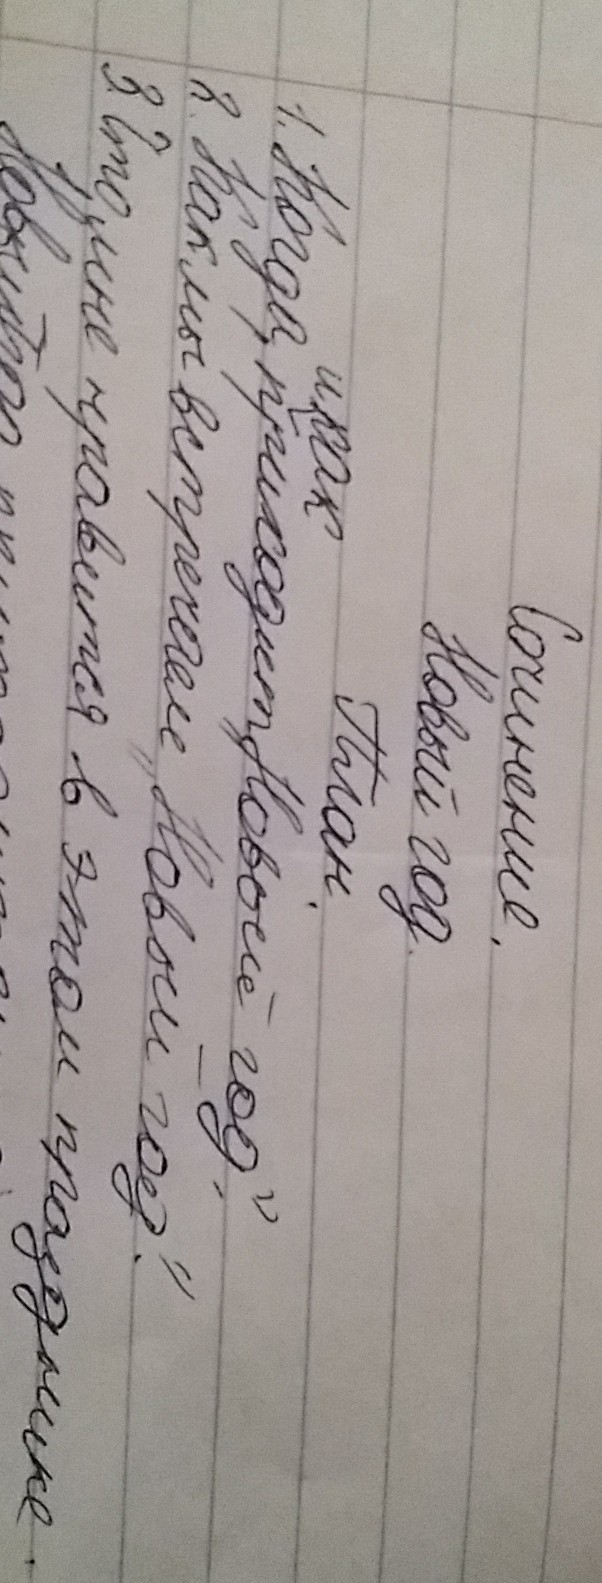 Сочинение.
Новый год.
План.
1. Когда и как приходит „Новый год".
2. Как мы встречаем „Новый год".
3. Что мне нравится в этом празднике.